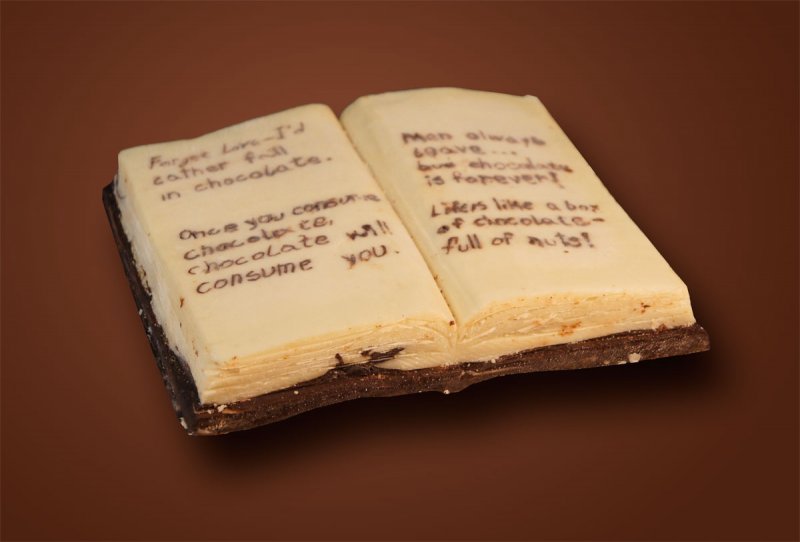 Forget Love-I'd
rather fall
in chocolate.
Once you consume
chocolate,
chocolate will
consume you.
Men always
leave...
but chocolate
is forever!
Life is like a box
of chocolate-
full of nuts!